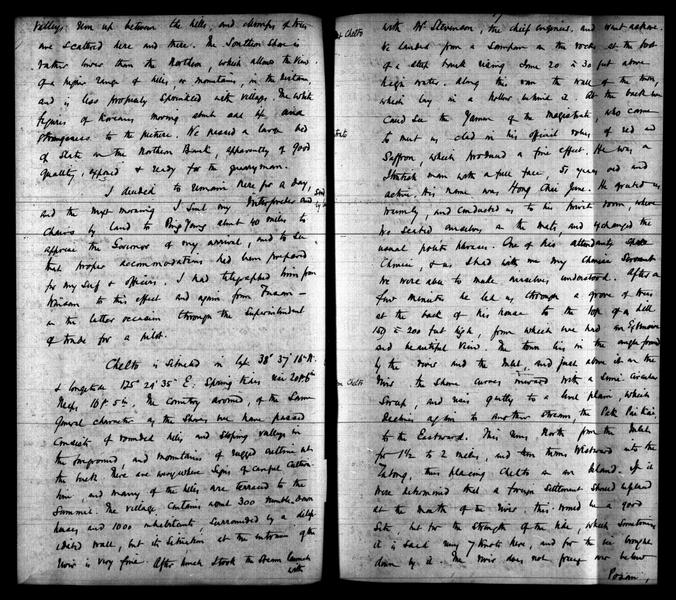 valleys run up between the hills, and clumps of trees
are scattered here and there. The Southern Shore is
rather lower than the Northern, which allows the view
of a higher range of hills, or mountains, in the distance,
and is less profusely sprinkled with villages. The white
figures of Koreans moving about add life and
strangeness to the picture. We passed a large bed
of Slate on the Northern Bank, apparently of good
quality, exposed & ready for the quarryman.
I decided to remain here for a day,
and the next morning I sent my Interpreter and
Chairs by land to Ping Yang about 40 miles to
apprise the Governor of my arrival, and to see
that proper accommodations had been prepared
for my self & officers. I had telegraphed him from
to this effect and again from Fusan -
on the latter occasion through the Superintendent
of trade for a pilot.
Chelto is situated in lat 38° 37' 16" N.
& longitude 125° 21' 35" E: Spring tides rise
Neaps The country around, of the same
general character as the Shores we have passed
consists of rounded hills and sloping valleys in
the foreground and mountains of rugged outline at
the back. There are everywhere signs of careful cultiva-
tion and many of the hills are terraced to the
Summit. The village contains about 300 tumble-down
houses and 1000 inhabitants, surrounded by a delap-
idated wall, but its situation at the entrance of the
river is very fine. After lunch I took the Steam launch
with
with Mr Stevenson, the chief engineer, and went ashore.
We landed from a Sampan on the rocks at the foot
of a steep bank rising some 20 à 30 feet above
high water. Along this ran the wall of the town,
which lay in a hollow behind it. At the back we
could see the Yamen of the magistrate, who came
to meet us clad in his official robes of red and
Saffron, which produced a fine effect. He was a
man with a full face, 51 years old and
active. His name was Hong Chai June. He greeted us
warmly, and conducted us to his private room, where
we seated ourselves on the mats, and exchanged the
usual polite phrases. One of his attendants spoke
Chinese, & as I had with me my Chinese Servant
we were able to make ourselves understood. After a
few minutes he led us through a grove of trees
at the back of his house to the top of a hill
150 à 200 feet high, from which we had an extensive
and beautiful view. The town lies in the angle formed
by the river and the Inlet, and just above it on the
river the Shore curves inward with a Semi-circular
Sweep, and rises gently to a level plain, which
declines again to another stream the
to the Eastward. This runs North from the Inlet
for 1½ to 2 miles, and then turns Westward into the
Tatong, thus placing Chelto on an Island. If it
were determined that a foreign Settlement should be placed
at the mouth of the river, this would be a good
Site, but for the strength of the tide, which sometimes
it is said runs 7 knots here, and for the ice brought
down by it. The river does not freeze over below
Posan,